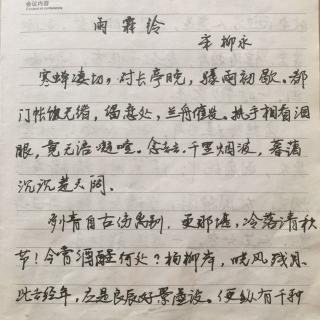 会议内容
Content of conference
雨霖铃
宋 柳永
寒蝉凄切，对长亭晚，骤雨初歇。都
门帐饮无绪，留恋处，兰舟催发。执手相看泪
眼，竟无语凝噎。念去去，千里烟波，暮蔼
沉沉楚天阔。
多情自古伤离别，更那堪，冷落清秋
节！今宵酒醒何处？杨柳岸，晓风残月。
此去经年，应是良辰好景虚设。便纵有千种